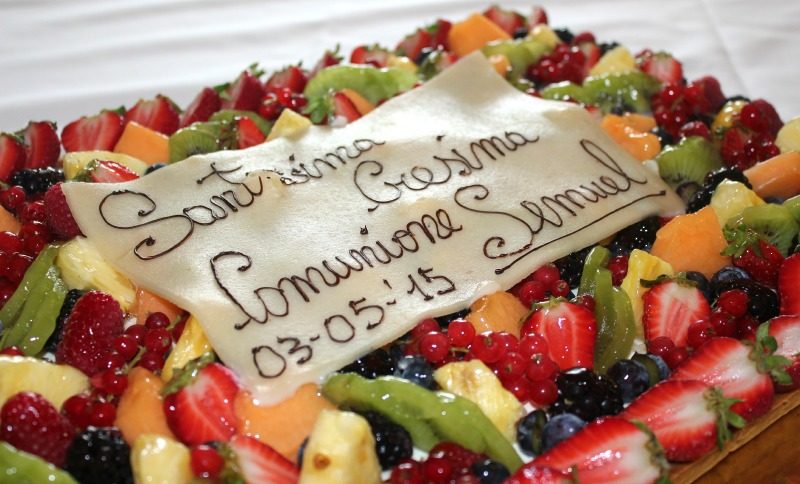 Santissima Cresima
Comunione Semuel
03-05-'15